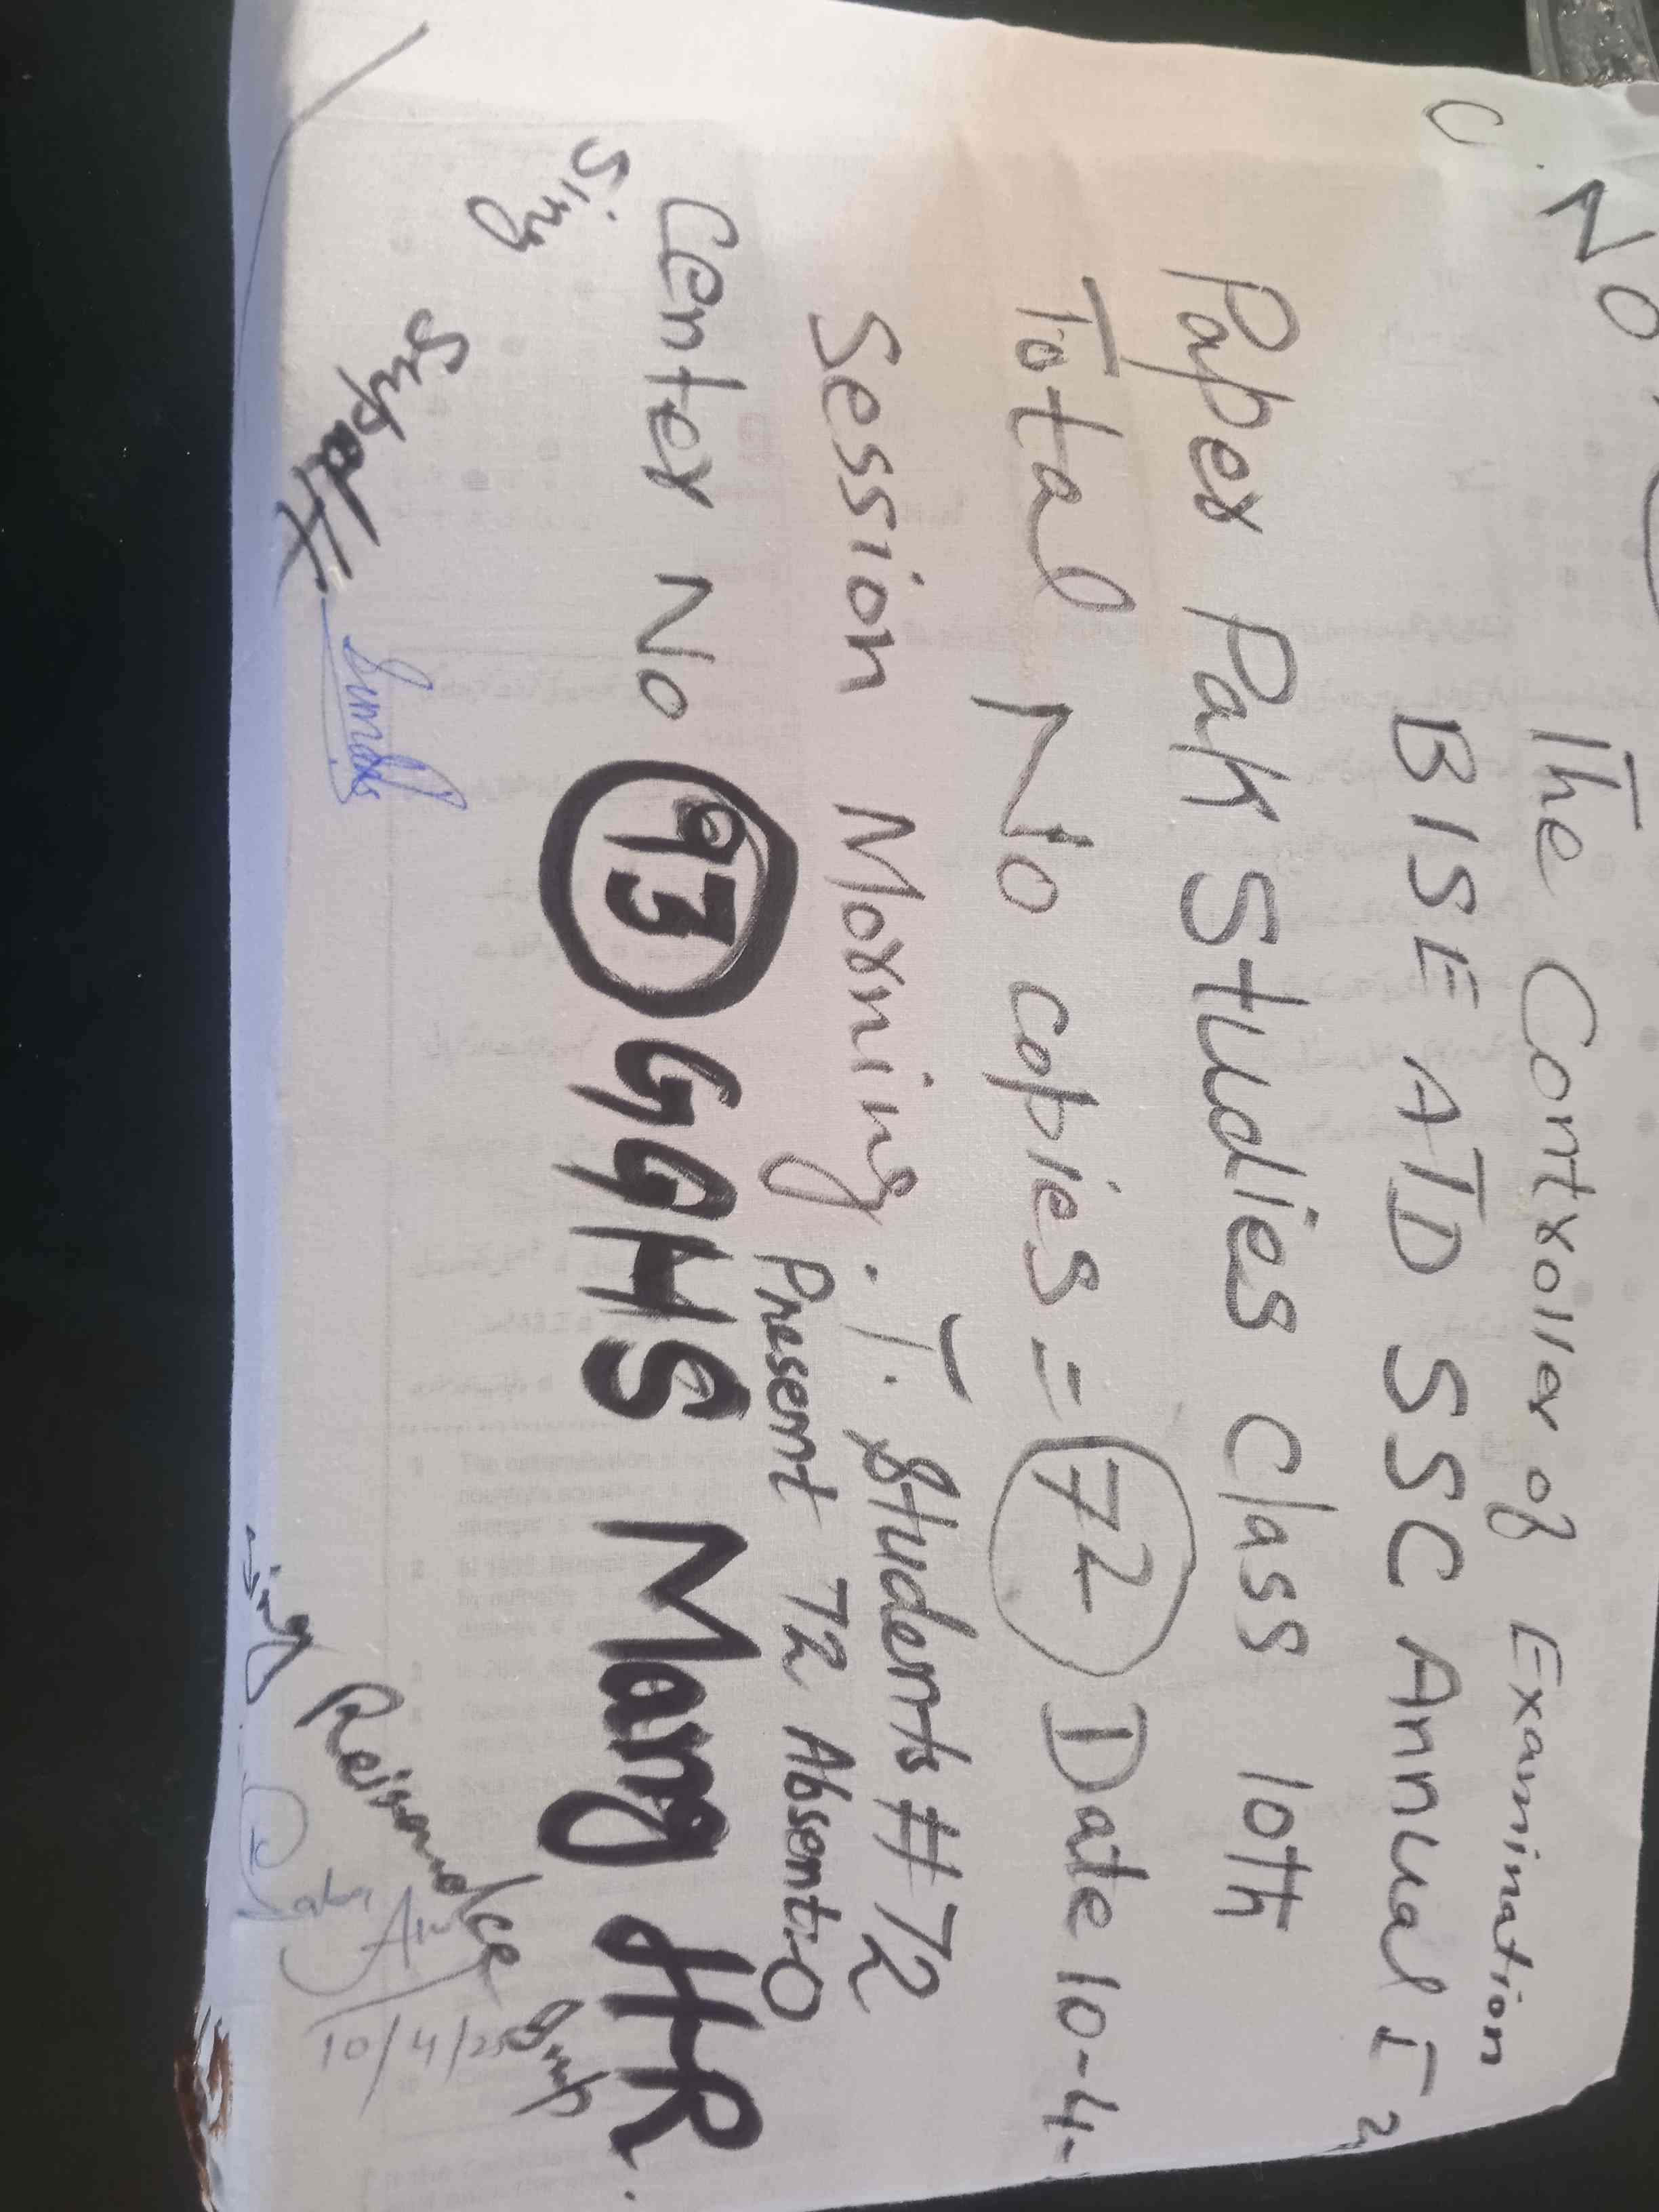 C. No.
The Controller of Examination
BISE ATD SSC Annual I 2
Paper Pak Studies Class 10th
Total No copies = 72 Date 10-4-
Session Morning. T. Students # 72
Present 72 Absent-0
Center No 93 GGHS Mang HR.
Sing Supdtt.
Sing Reisend/ce Smp
10/4/25